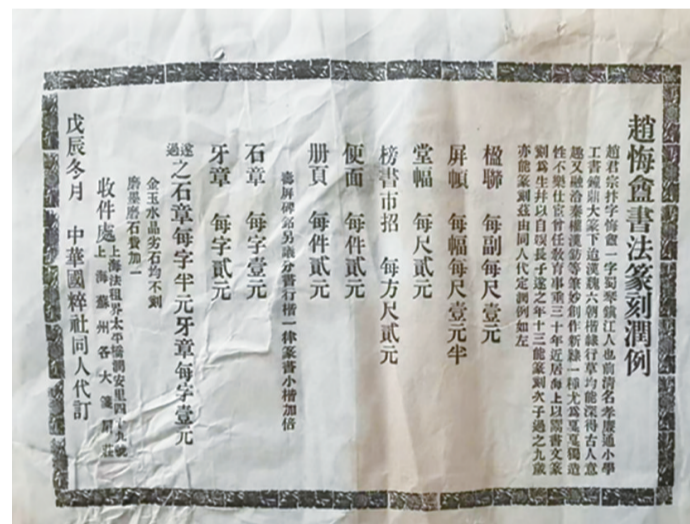 趙悔盦書法篆刻潤例
趙君宗抃字悔盦一字蜀琴鎮江人也前清名孝廉通小學
工書鐘鼎大篆下迨漢魏六朝楷隸行草均能深得古人意
趣又融洽秦權漢鐙等筆妙創作新隸一種尤爲戛戛獨造
性不樂仕宦曾任敎育事業三十年近居海上以鬻書文篆
刻爲生幷以自娛長子遂之年十三能篆刻次子過之九歲
亦能篆刻茲由同人代定潤例如左
楹聯　每副每尺壹元
屏幀　每幅每尺壹元半
堂幅　每尺貳元
榜書市招　每方尺貳元
便面　每件貳元
册頁　每件貳元
壽屏碑誌另議分書行楷一律篆書小楷加倍
石章　每字壹元
牙章　每字貳元
遂過之石章每字半元牙章每字壹元
金玉水晶劣石均不刻
磨墨磨石費加一
收件處
上海法租界太平橋潤安里四十九號
上海蘇州各大箋扇莊
戊辰冬月　中華國粹社同人代訂